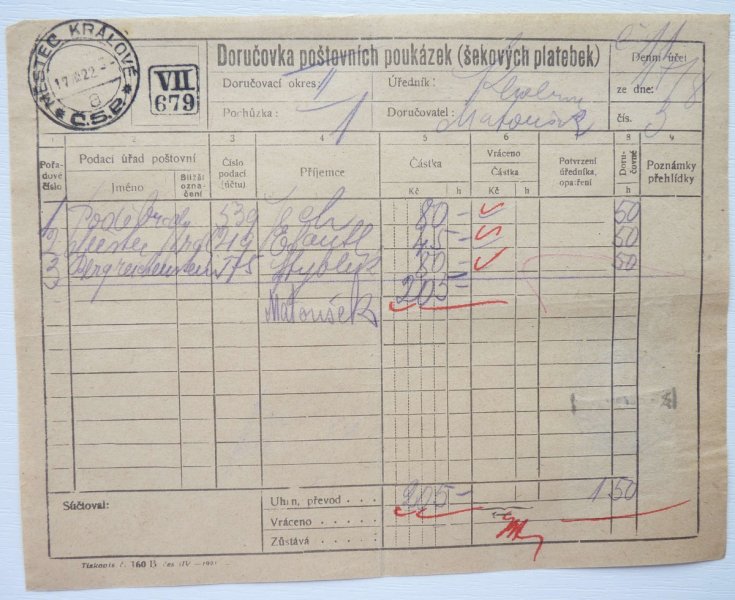 MĚSTEC KRÁLOVÉ
17 VIII 22
8
Č.S.P.
VII
679
Doručovka poštovních poukázek (šekových platebek)
Denní účet
Doručovací okres: Úředník:
ze dne: 17/8
Pochůzka: 1 Doručovatel: Matoušek
čís. 3
1 2 3 4 5 6 7 8 9
Pořadové číslo Podací úřad poštovní Číslo podací (účtu) Příjemce Částka Vráceno Potvrzení úředníka, opatření Doručovné Poznámky přehlídky
Jméno Bližší označení Částka
Kč h Kč h h
1 Poděbrady 539 80 — 50
2 Městec Král 219 45 — 50
3 Bergreichenstein 175 80 — 50
205 —
Matoušek
Súčtoval: Úhrn, převod 205 — 1 50
Vráceno
Zůstává
Tiskopis č. 160 B